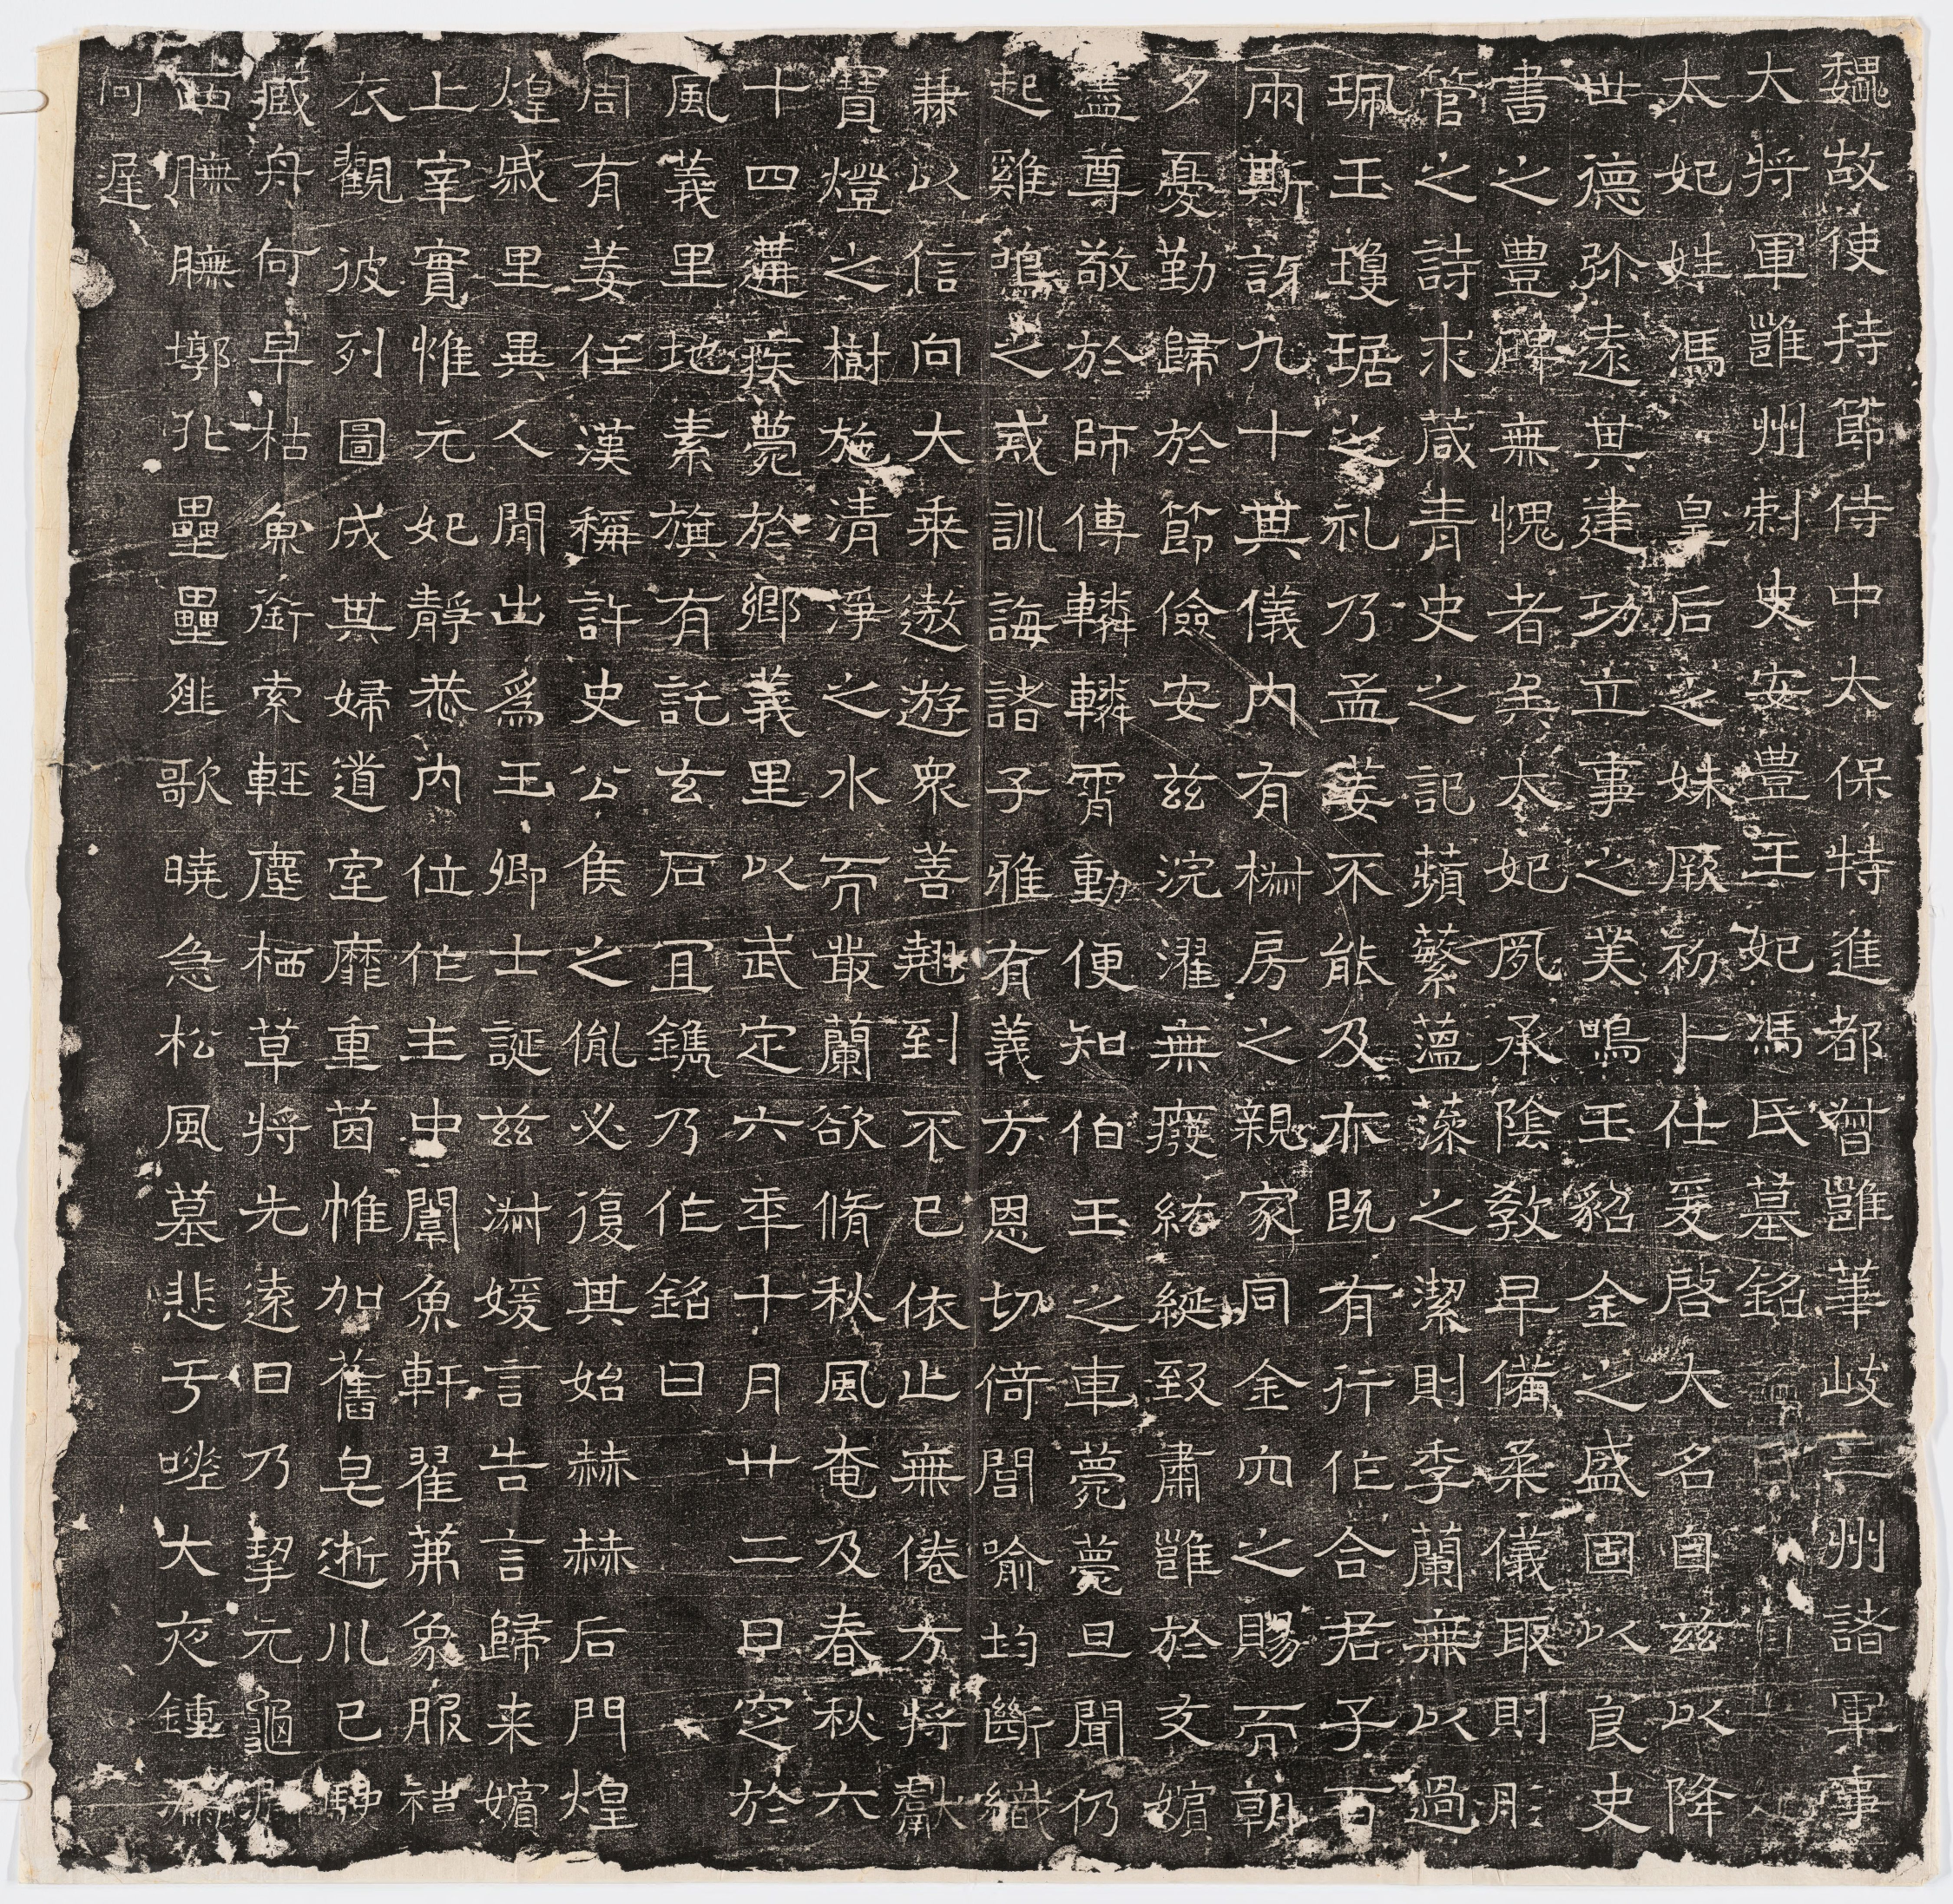 魏故使持節侍中太保特進都督雝華岐三州諸軍事
大將軍雝州刺史安豊王妃馮氏墓銘
太妃姓馮 皇后之妹厥初卜仕爰啓大名自兹以降
世德弥遠其建功立事之美鳴玉貂金之盛固以良史
書之豊碑無愧者矣太妃夙承陰敎早備柔儀取則彤
管之詩求葴青史之記蘋蘩薀藻之潔則季蘭無以過
珮玉瓊琚之礼乃孟姜不能及亦既有行作合君子百
兩斯訝九十其儀内有椒房之親家同金穴之賜而朝
夕憂勤歸於節儉安兹浣濯無癈紘綖致肅雝於友嬪
盡尊敬於師傅轔轔霄動便知伯玉之車薨薨旦聞仍
起雞鳴之戒訓誨諸子雅有義方恩切倚閭喻均斷織
兼以信向大乗遨遊衆善翹到不已依止無倦方將獻
寶燈之樹施清淨之水而叢蘭欲脩秋風奄及春秋六
十四遘疾薨於鄉義里以武定六年十月廿二日窆於
風義里地素旗有託玄石冝鐫乃作銘曰
周有姜任漢稱許史公侯之胤必復其始赫赫后門煌
煌戚里異人閒出爲王卿士誕兹淑媛言告言歸来嬪
上宰實惟元妃靜恭内位作主中闈魚軒翟茀象服袺
衣觀彼列圖成其婦道室靡重茵帷加舊皂逝川已駚
藏舟何早枯魚銜索輕塵栖草將先遠日乃挈元龜
西膴膴墎北壘壘䧿歌曉急松風墓悲于嗟大夜鍾漏
何遅